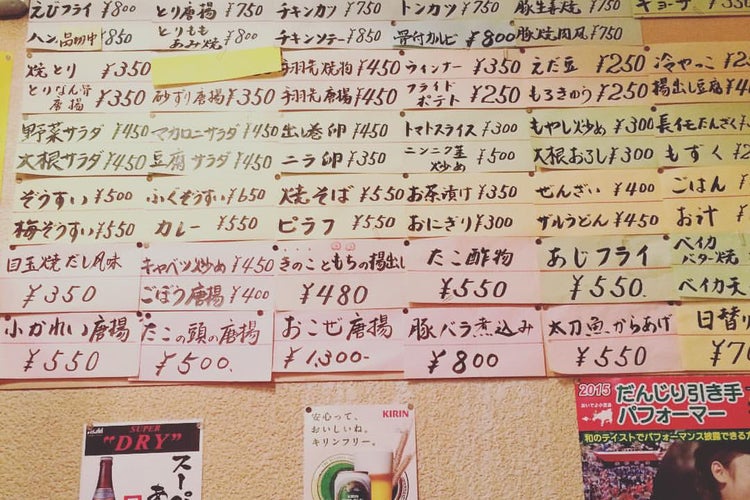 えびフライ ¥800 とり唐揚 ¥750 チキンカツ ¥750 トンカツ ¥750 豚生姜焼 ¥750 ギョーザ ¥350
品切中 ¥850 とりももあみ焼 ¥800 チキンソテー ¥850 骨付カルビ ¥800 豚焼肉風 ¥750
焼とり ¥350 手羽先焼物 ¥450 ウィンナー ¥350 えだ豆 ¥250 冷やっこ ¥25
とりなん骨唐揚 ¥350 砂ずり唐揚 ¥350 手羽先唐揚 ¥450 フライドポテト ¥250 もろきゅう ¥250 揚出し豆腐 ¥4
野菜サラダ ¥450 マカロニサラダ ¥450 出し巻卵 ¥450 トマトスライス ¥300 もやし炒め ¥300 長イモたんざく ¥3
大根サラダ ¥450 豆腐サラダ ¥450 ニラ卵 ¥350 ニンニク茎炒め ¥500 大根おろし ¥300 もずく ¥2
ぞうすい ¥500 ふくぞうすい ¥650 焼そば ¥550 お茶漬け ¥350 ぜんざい ¥400 ごはん ¥
梅ぞうすい ¥550 カレー ¥550 ピラフ ¥550 おにぎり ¥300 ザルうどん ¥450 お汁 ¥
目玉焼だし風味 ¥350
キャベツ炒め ¥450
ごぼう唐揚 ¥400
きのこともちの揚出し ¥480
たこ酢物 ¥550
あじフライ ¥550.
ベイカバター焼 ¥
ベイカ天
小がれい唐揚 ¥550
たこの頭の唐揚 ¥500.
おこぜ唐揚 ¥1,300-
豚バラ煮込み ¥800
太刀魚からあげ ¥550
日替り ¥70
Asahi
SUPER
"DRY"
スーパ
安心って、
おいしいね。
キリンフリー。
KIRIN
2015
だんじり引き手
パフォーマー
和のテイストでパフォーマンス披露できる